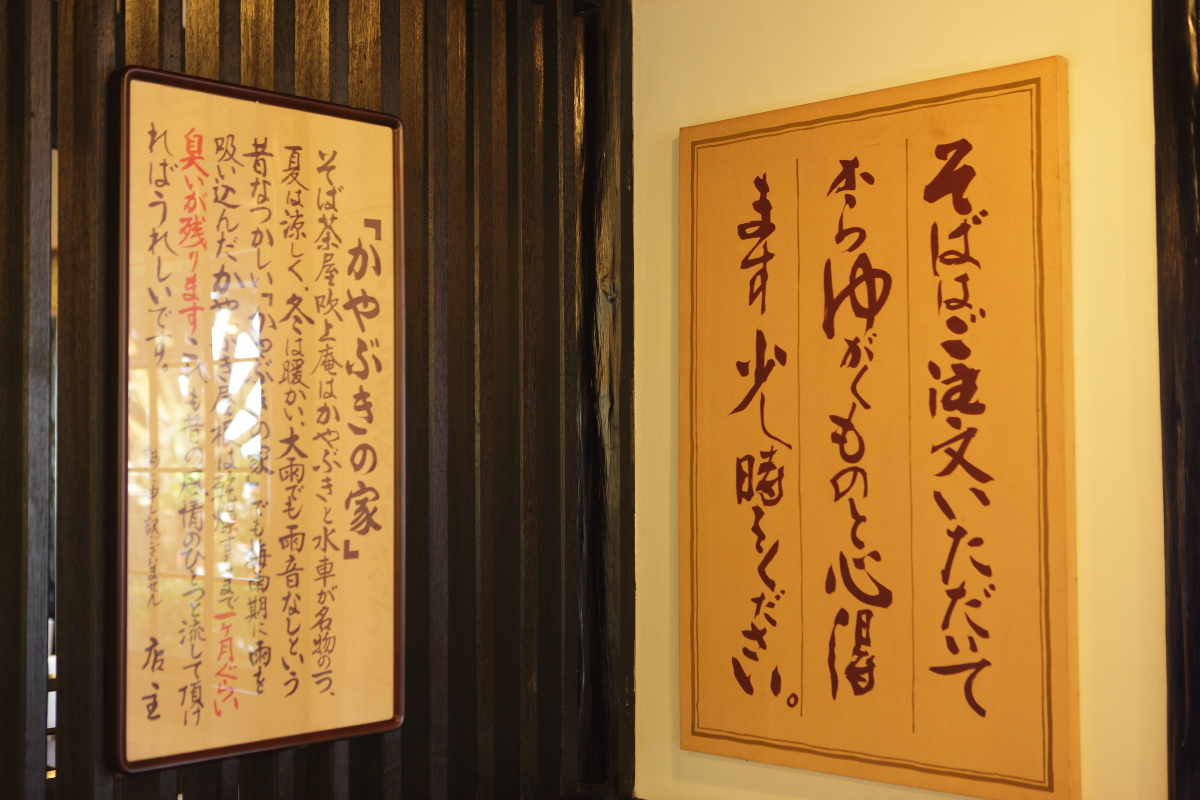 そばはご注文いただいて
からゆがくものと心得
ます少し時をください。
「かやぶきの家」
そば茶屋吹上庵はかやぶきと水車が名物の一つ、
夏は涼しく、冬は暖かい、大雨でも雨音なしという
昔なつかしい「かやぶきの家」でも梅雨期に雨を
吸い込んだかやぶき屋根は乾燥するまで一ヶ月ぐらい
臭いが残りますこれも昔の風情のひとつと流して頂け
ればうれしいです。
申し訳ございません
店主